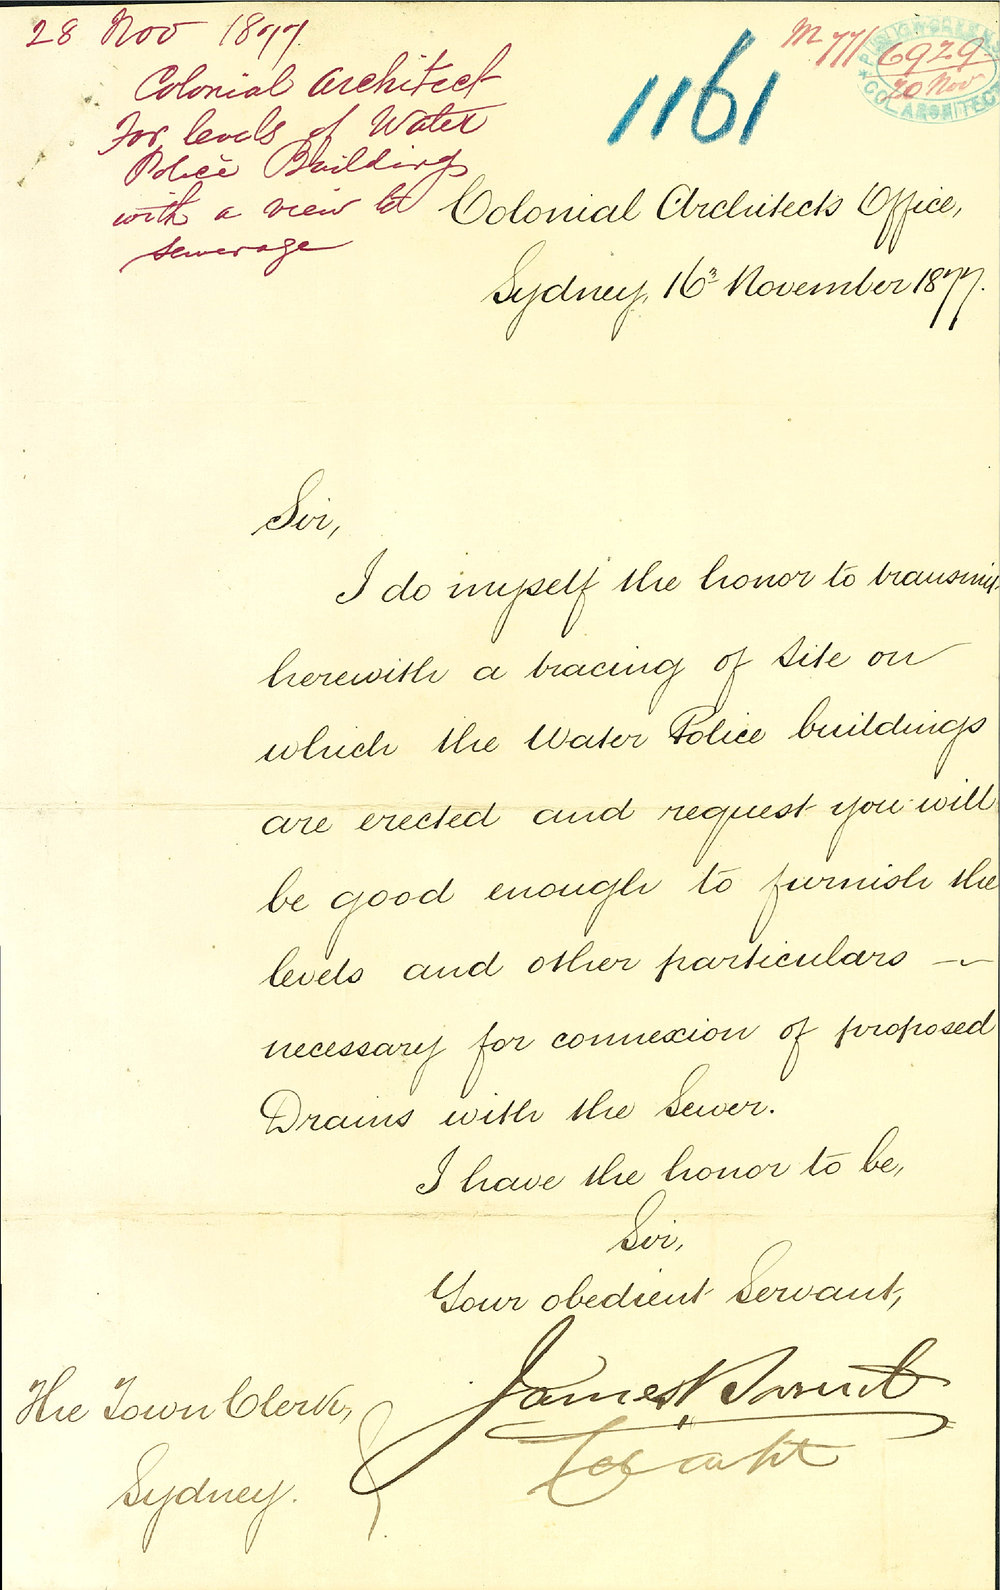 28 Nov 1877
Colonial Architect
For levels of Water
Police Buildings
with a view to
sewerage
1161
M 77/6929
20 Nov
COL. ARCHITECT
Colonial Architects Office,
Sydney, 16 November 1877.
Sir,
I do myself the honor to transmit
herewith a tracing of site on
which the Water Police buildings
are erected and request you will
be good enough to furnish the
levels and other particulars
necessary for connexion of proposed
Drains with the Sewer.
I have the honor to be,
Sir,
Your obedient Servant,
James Barnet
Col Archt
The Town Clerk,
Sydney.